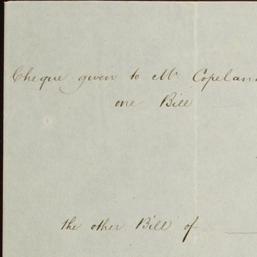 Cheque given to Mr Copelan
one Bill
the other Bill of